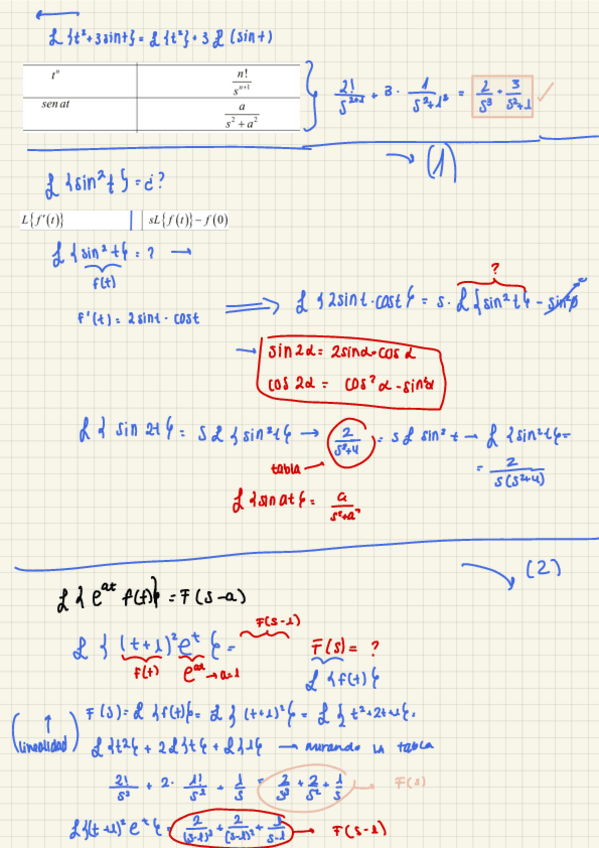 ℒ{t²+3sint} = ℒ{t²}+3ℒ(sint)
tⁿ n!/sⁿ⁺¹
sen at a/(s²+a²)
2!/s²⁺¹ + 3 · 1/(s²+1²) = 2/s³ + 3/(s²+1) ✓
→ (1)
ℒ{sin²t} = ¿?
L{f'(t)} sL{f(t)}−f(0)
ℒ{sin²t} = ? →
f(t)
?
f'(t) = 2sint·cost ⟹ ℒ{2sint·cost} = s·ℒ{sin²t} − sin²0
→ sin2α = 2sinα·cosα
cos2α = cos²α−sin²α
ℒ{sin2t} = sℒ{sin²t} → 2/(s²+4) = sℒ sin²t → ℒ{sin²t} =
= 2/(s(s²+4))
tabla
ℒ{sinat} = a/(s²+a²)
(2)
ℒ{eᵃᵗ f(t)} = F(s−a)
F(s−1)
ℒ{(t+1)²eᵗ} = F(s) = ?
f(t) eᵃᵗ → a=1 ℒ{f(t)}
F(s) = ℒ{f(t)} = ℒ{(t+1)²} = ℒ{t²+2t+1} =
(linealidad) ℒ{t²} + 2ℒ{t} + ℒ{1} → mirando la tabla
2!/s³ + 2· 1!/s² + 1/s = 2/s³ + 2/s² + 1/s → F(s)
ℒ{(t+1)² eᵗ} = 2/(s−1)³ + 2/(s−1)² + 1/(s−1) → F(s−1)